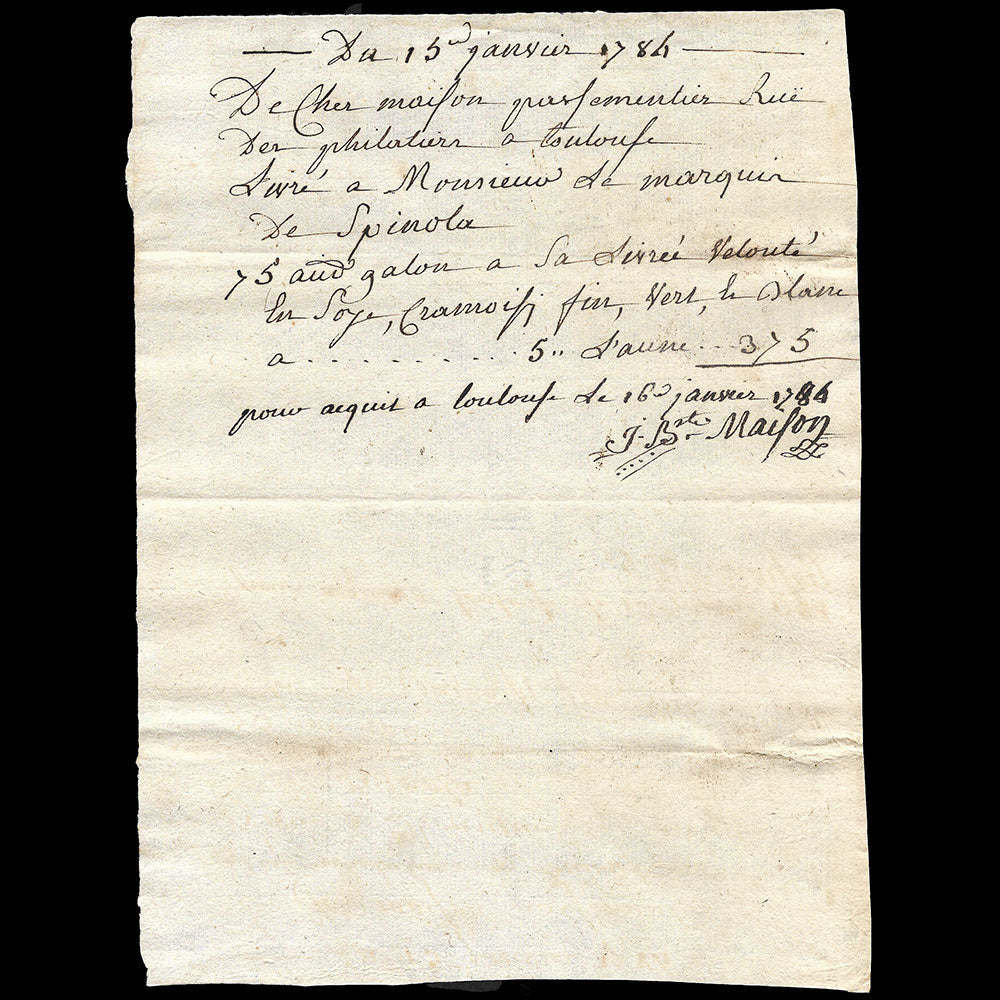 Du 15e janvier 1784
De Cher maison passementier Ruë
Des philatiers a toulouse
Livré a Monsieur Le marquis
De Spinola
75 aunes galon a Sa Livrée Velouté
En Soye, Cramoisy fin, Vert, & Blanc
a .......... 5" L'aune .. 375
pour acquit a toulouse Le 16e janvier 1784
J. Bte Maison